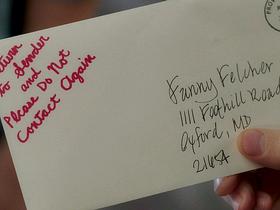 Return
to Sender
and
Please Do Not
Contact Again
Fanny Felcher
1111 Foothill Road
Oxford, MD
21654